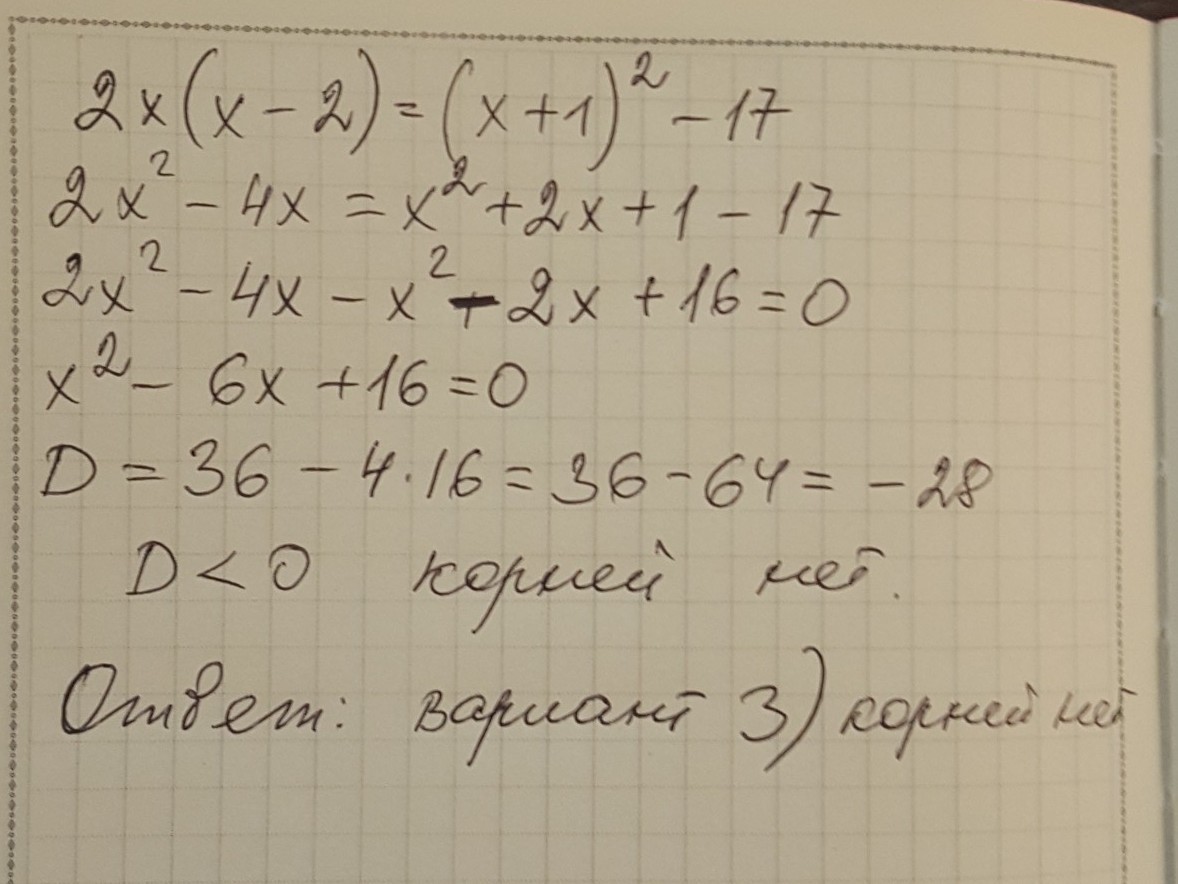 2x(x-2)=(x+1)²-17
2x²-4x=x²+2x+1-17
2x²-4x-x²-2x+16=0
x²-6x+16=0
D=36-4·16=36-64=-28
D<0 корней нет.
Ответ: вариант 3) корней нет